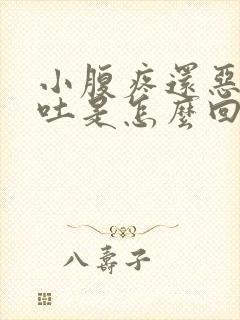 小腹疼還惡
吐是怎麼回
八壽子